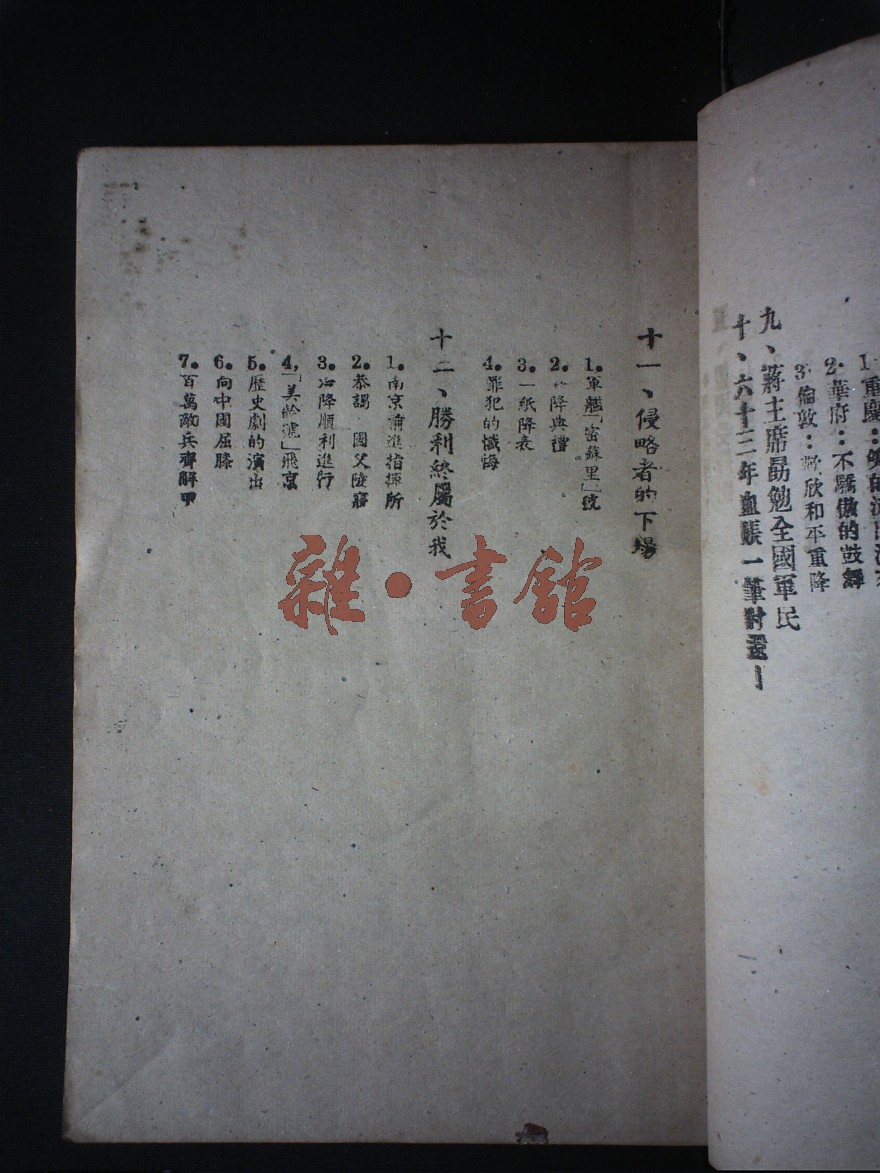 1. 重慶：
2. 華府：不驕傲的鼓舞
3. 倫敦：歡欣和平重降
九、蔣主席勗勉全國軍民
十、六十三年血賬一筆對還！
十一、侵略者的下場
1. 軍艦「密蘇里」號
2. 降典禮
3. 一紙降表
4. 罪犯的懺悔
十二、勝利終屬於我
1. 南京前進指揮所
2. 恭謁 國父陵寢
3. 降順利進行
4,「美齡號」飛京
5. 歷史劇的演出
6. 向中國屈膝
7. 百萬敵兵齊解甲
雜·書館